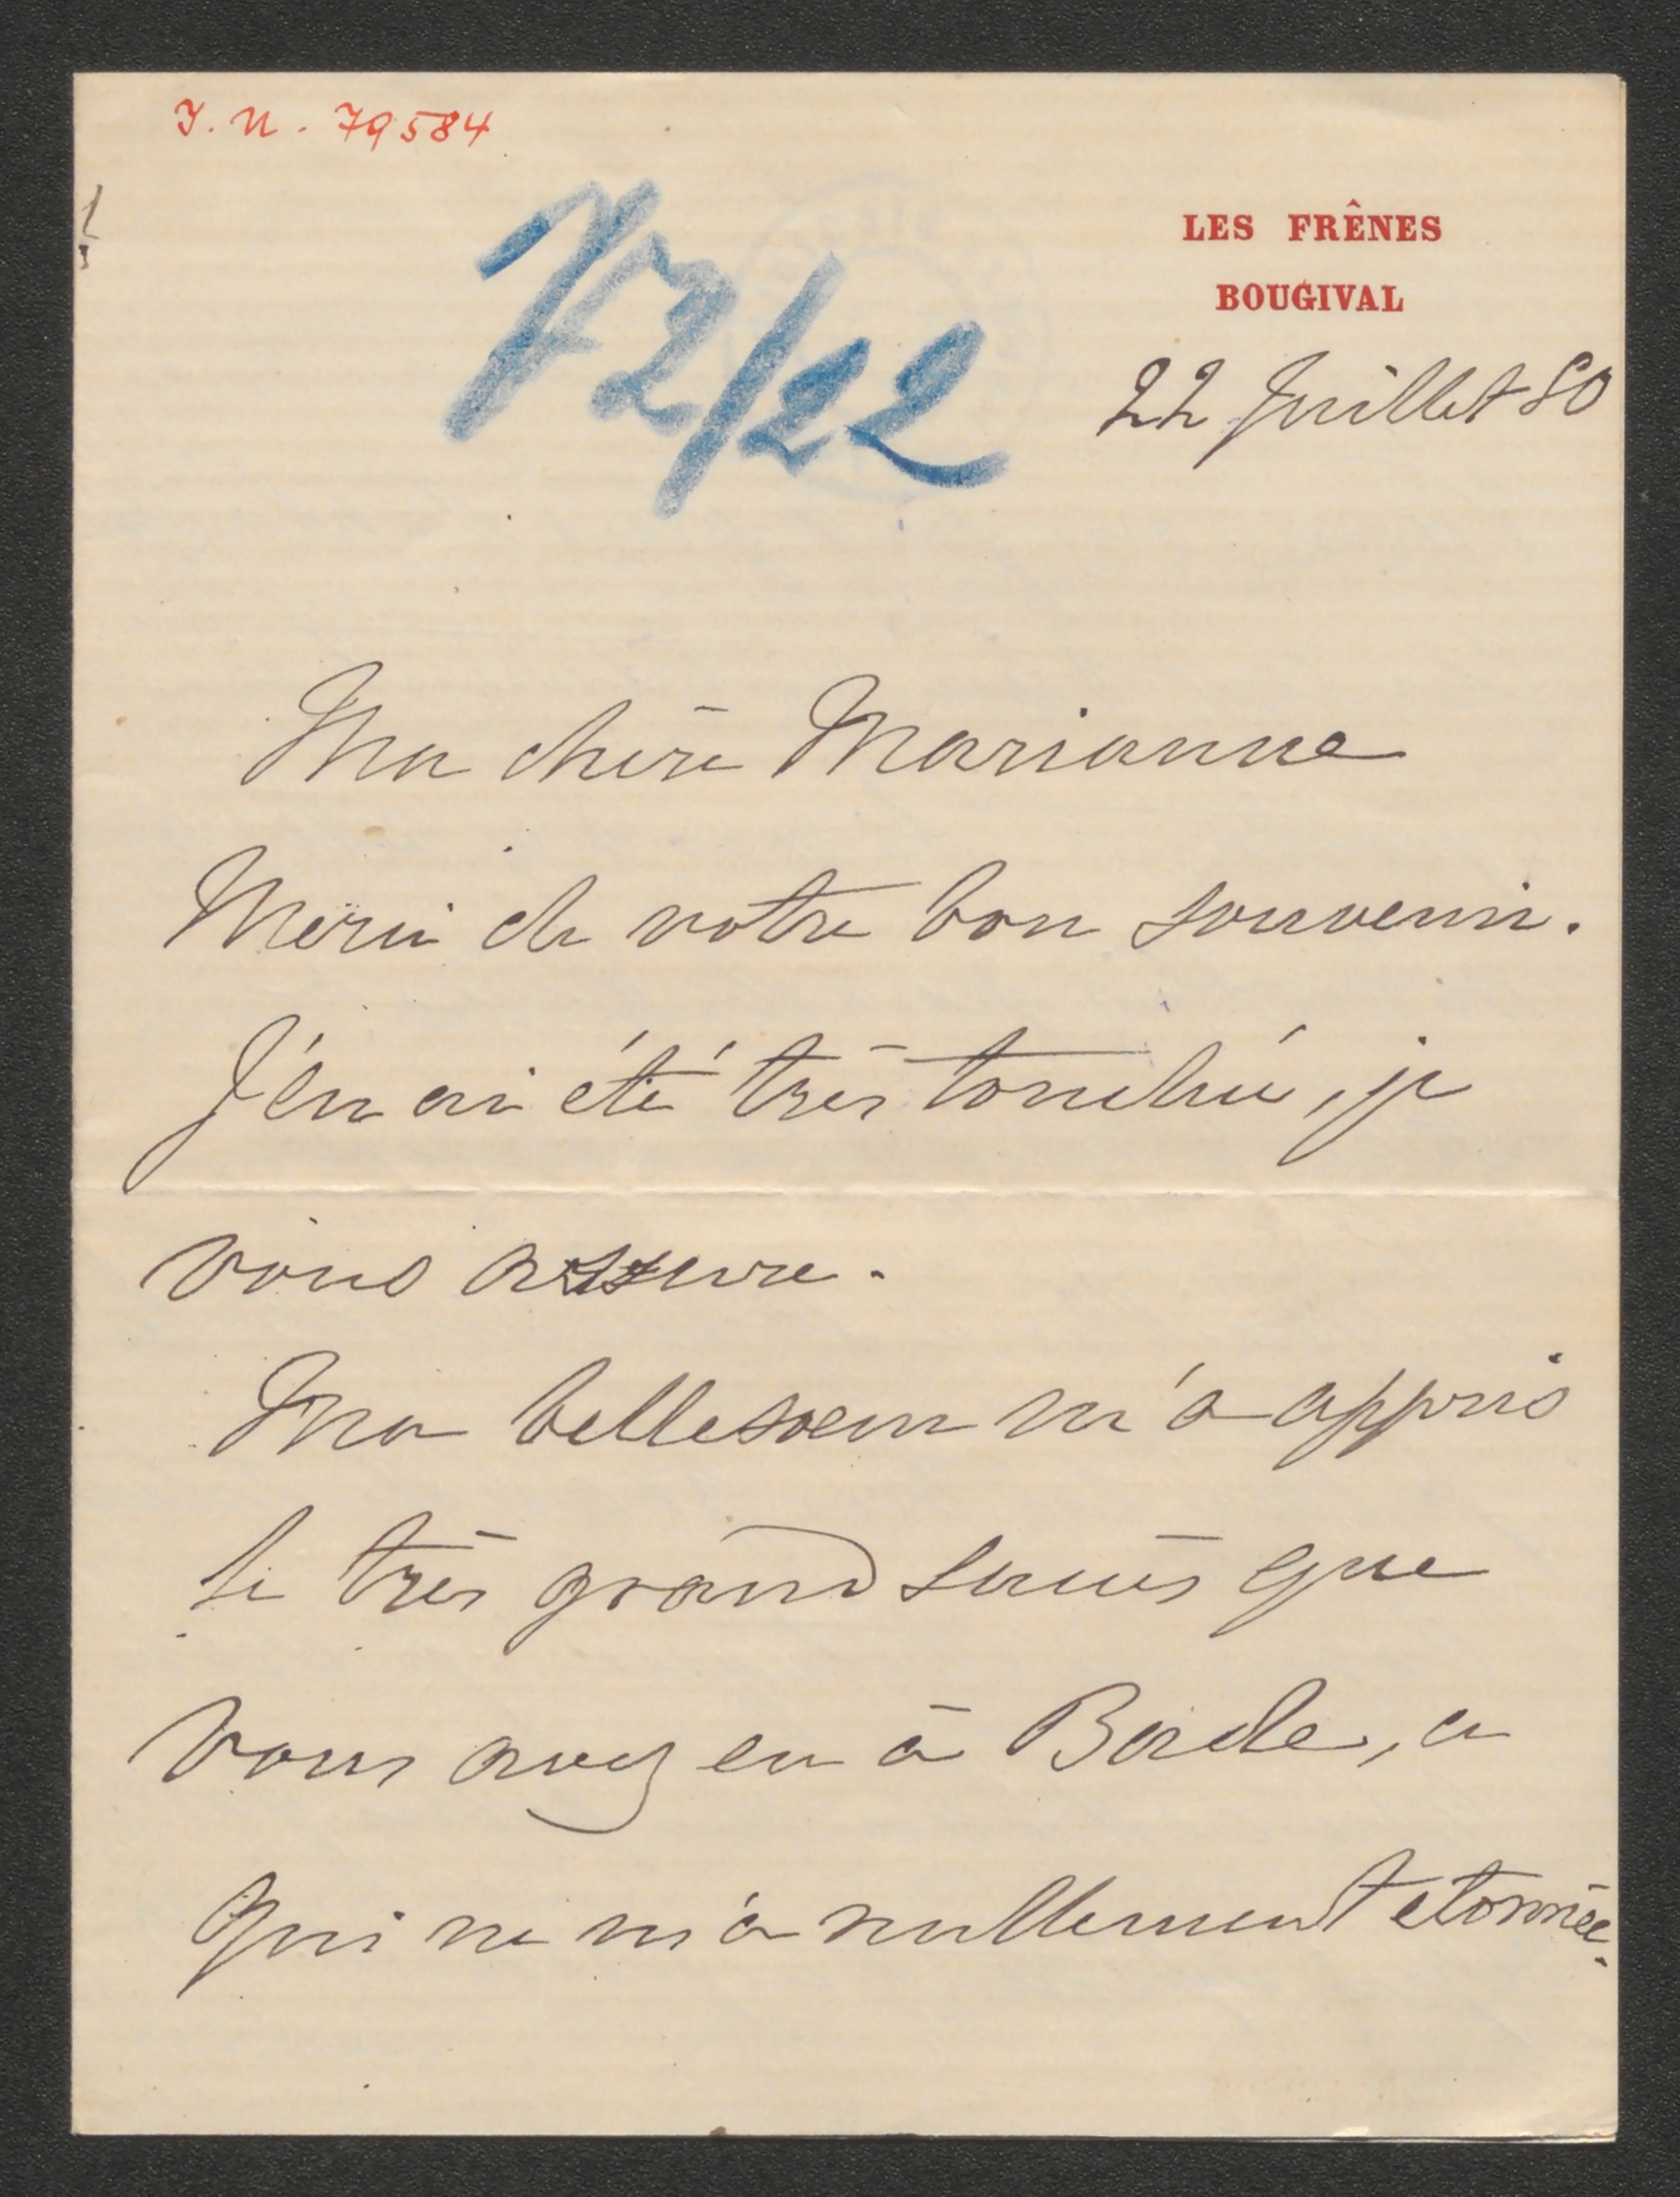 J. N. 79584
72/22
LES FRÊNES
BOUGIVAL
22 Juillet 80
Ma chère Marianne
Merci de votre bon souvenir.
J'en ai été très touchée, je
vous assure.
Ma bellesoeur m'a appris
le très grand succès que
vous avez eu à Basle, ce
qui ne m'a nullement etonnée.